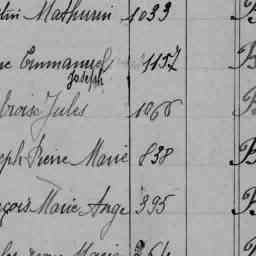 tin Mathurin 1033 B
ne Emmanuel 1157 B
Joseph
broise Jules 1066 B
eph Pierre Marie 838 B
çois Marie Ange 395 B
Marie 364